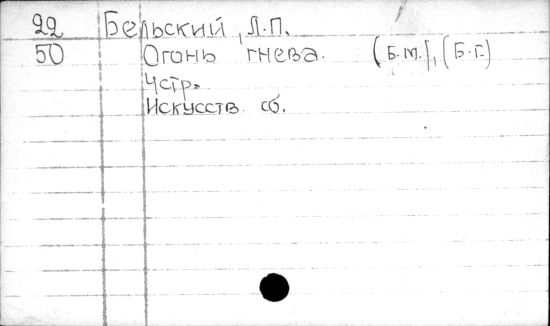 22 Бельский, Л.П.
50 Огонь гнева. (Б.м.], (Б.г.)
4стр.
Искусств. сб.